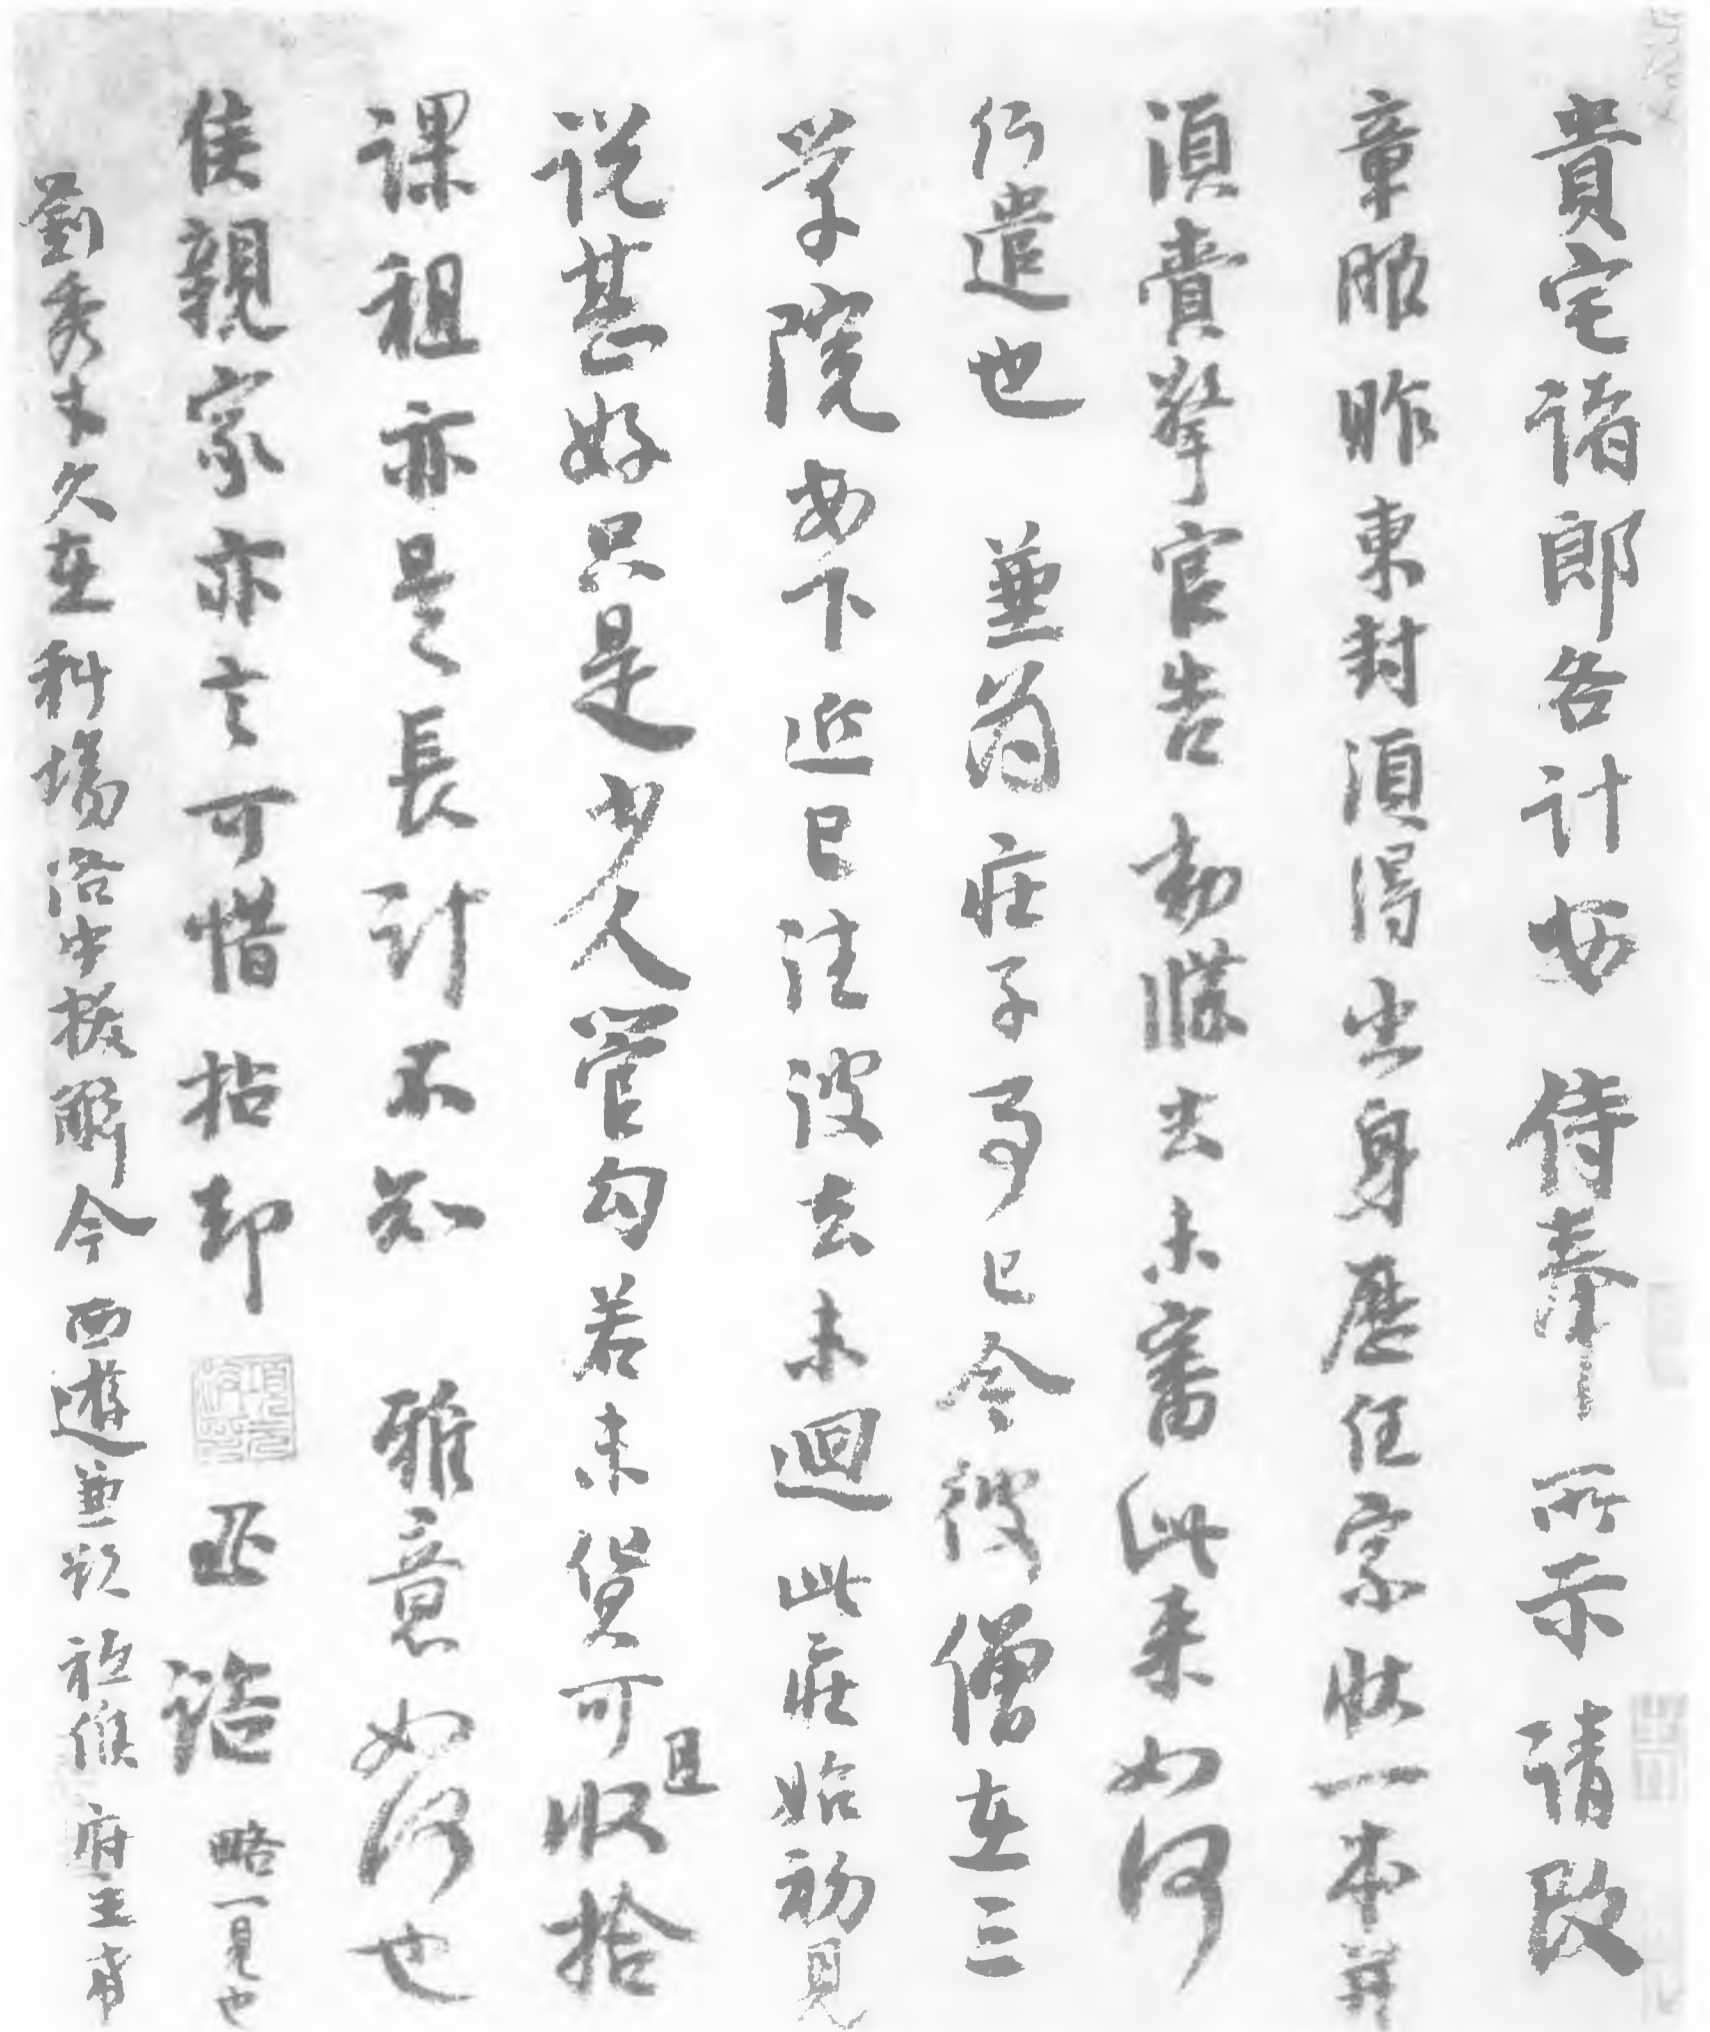 貴宅诸郎各计安 侍奉所示请改
章服昨東封須得出身歷任家状一本并
須賫擎官告勅牒去未審此来如何
行遣也 兼为庄子事已令彼僧在三
学院安下近已往彼去未迴此庄始初見
说甚好只是少人管勾若未貨可且收拾
课租亦是長计不知 雅意如何也
侯親家亦言可惜拈却 略一見也
劉秀才久在科場洛中拔解今西遊兼欲祗候府主